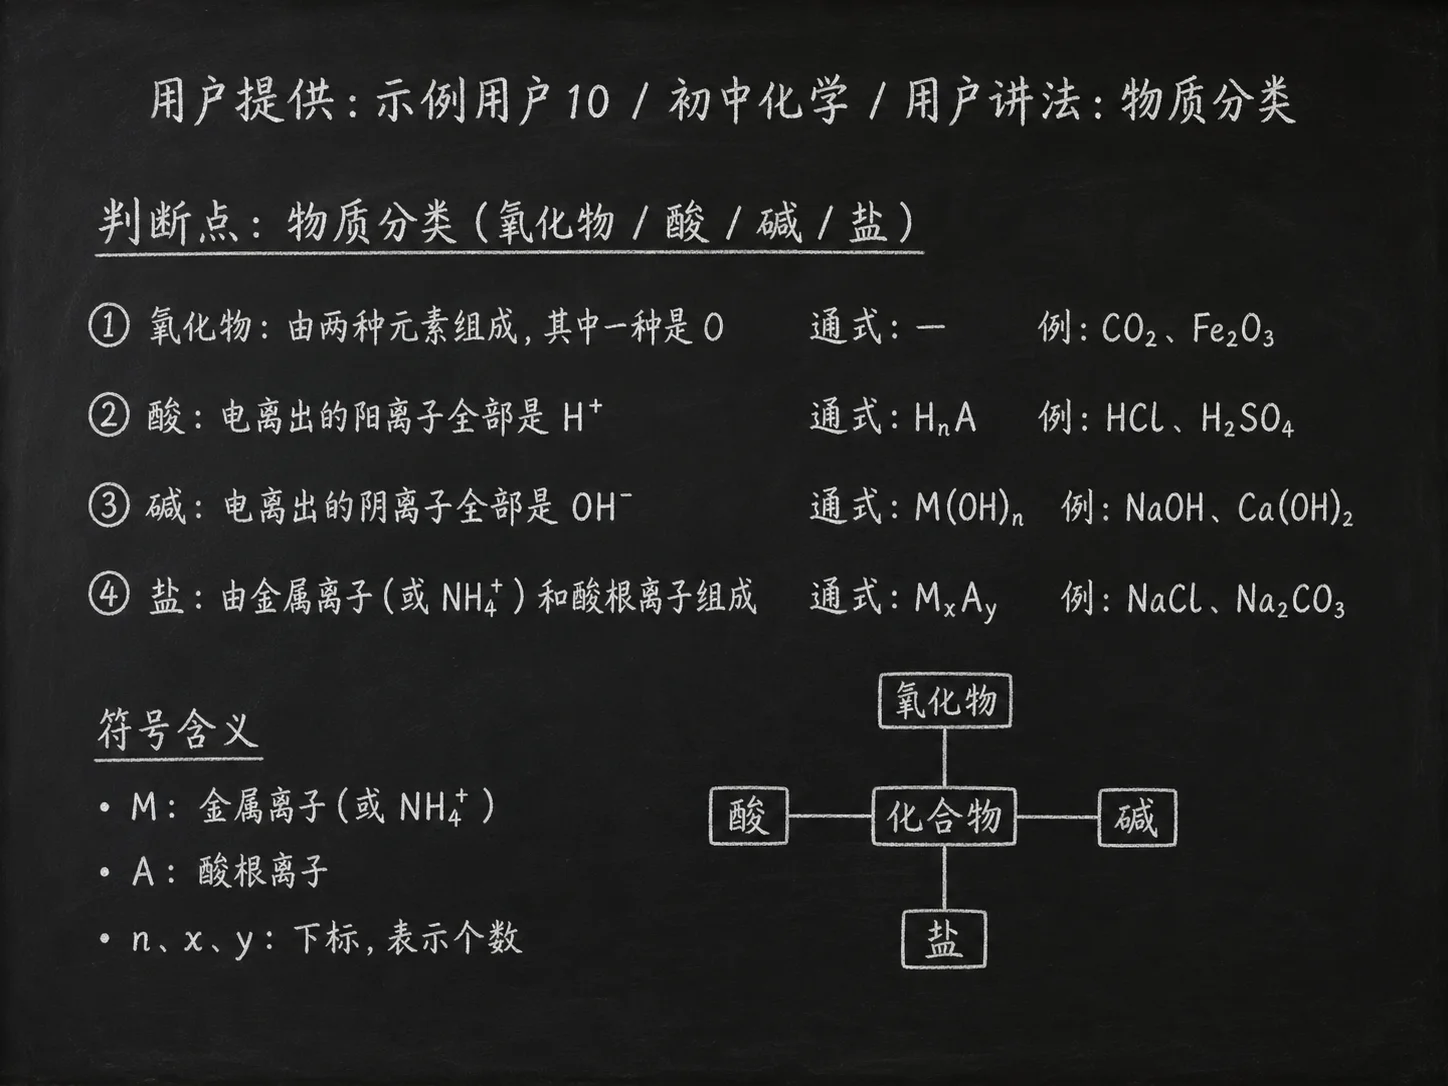 用户提供：示例用户10 / 初中化学 / 用户讲法：物质分类
判断点：物质分类（氧化物 / 酸 / 碱 / 盐）
① 氧化物：由两种元素组成，其中一种是 O 通式：— 例：CO₂、Fe₂O₃
② 酸：电离出的阳离子全部是 H⁺ 通式：HₙA 例：HCl、H₂SO₄
③ 碱：电离出的阴离子全部是 OH⁻ 通式：M(OH)ₙ 例：NaOH、Ca(OH)₂
④ 盐：由金属离子（或 NH₄⁺）和酸根离子组成 通式：MₓAᵧ 例：NaCl、Na₂CO₃
符号含义
• M：金属离子（或 NH₄⁺）
• A：酸根离子
• n、x、y：下标，表示个数
氧化物
酸 化合物 碱
盐